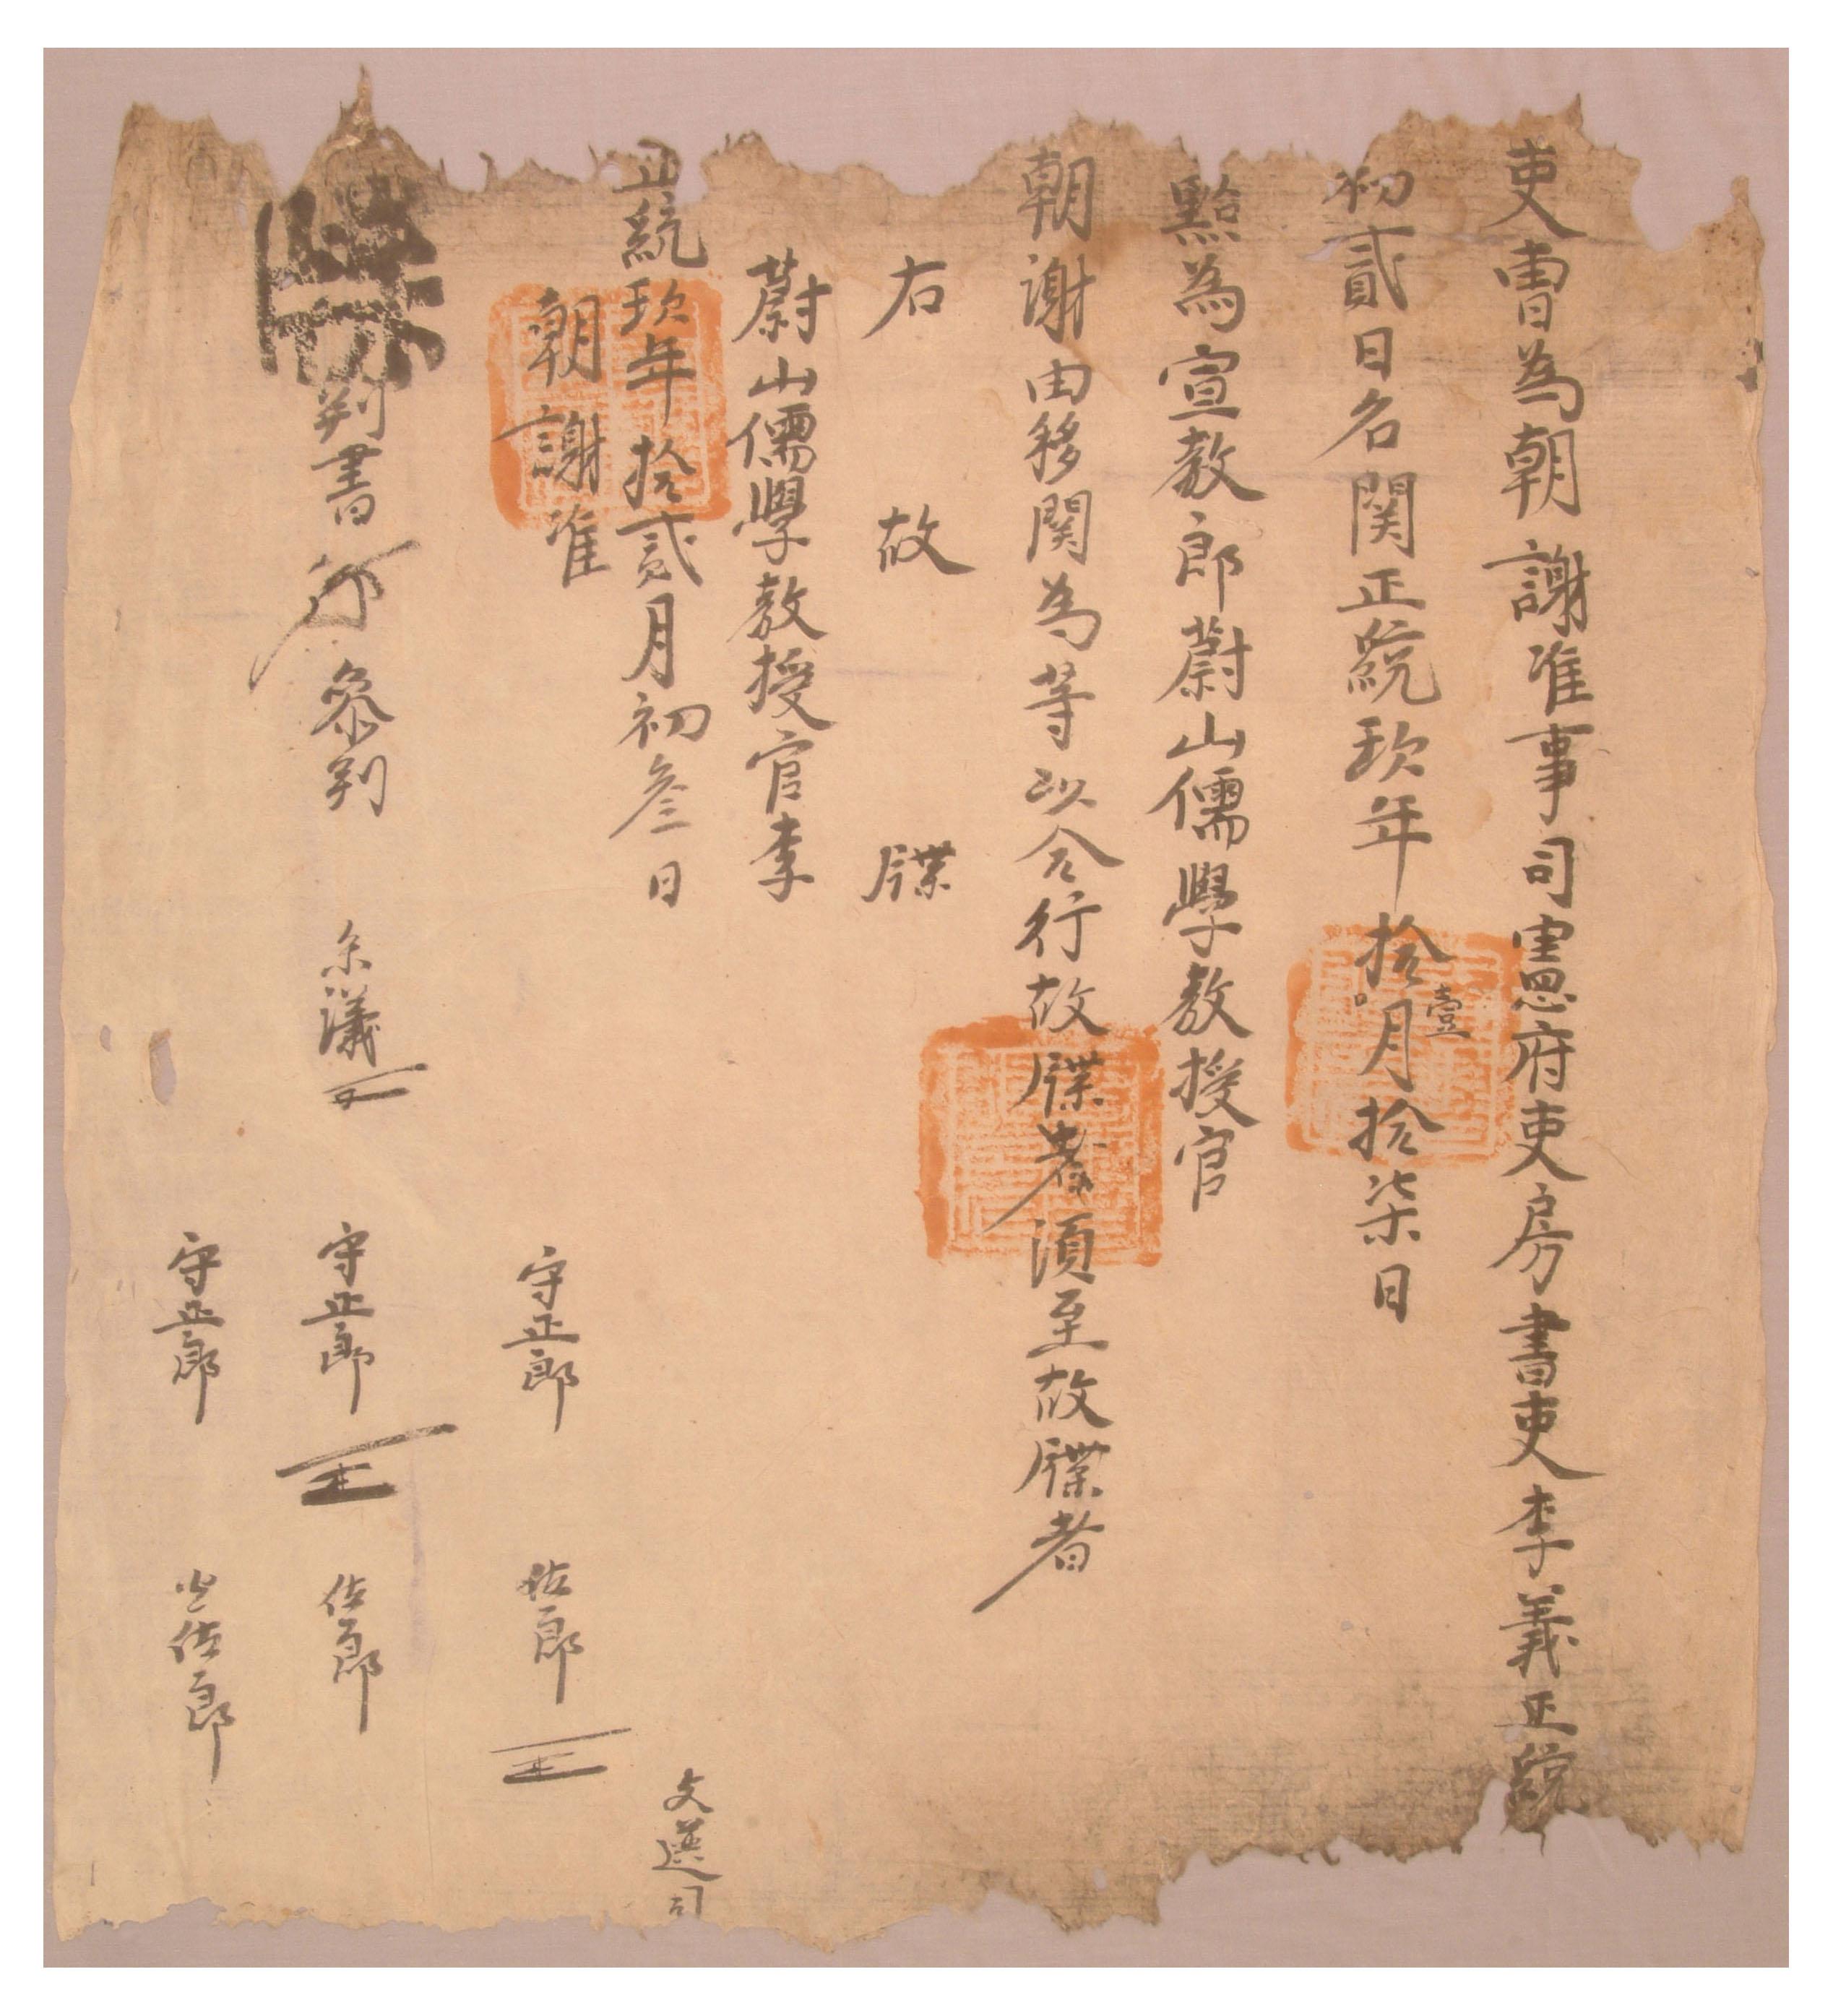 吏曹為朝謝准事司憲府吏房書吏李義正統
初貳日名関正統玖年拾壹月拾柒日
點為宣教郎蔚山儒學教授官
朝謝由移関為等以合行故牒者須至故牒者
右故牒
蔚山儒學教授官李
正統玖年拾貳月初叁日 文選司
朝謝准 守正郎 佐郎
判書 叅判 叅議 守正郎 佐郎
守正郎 佐郎